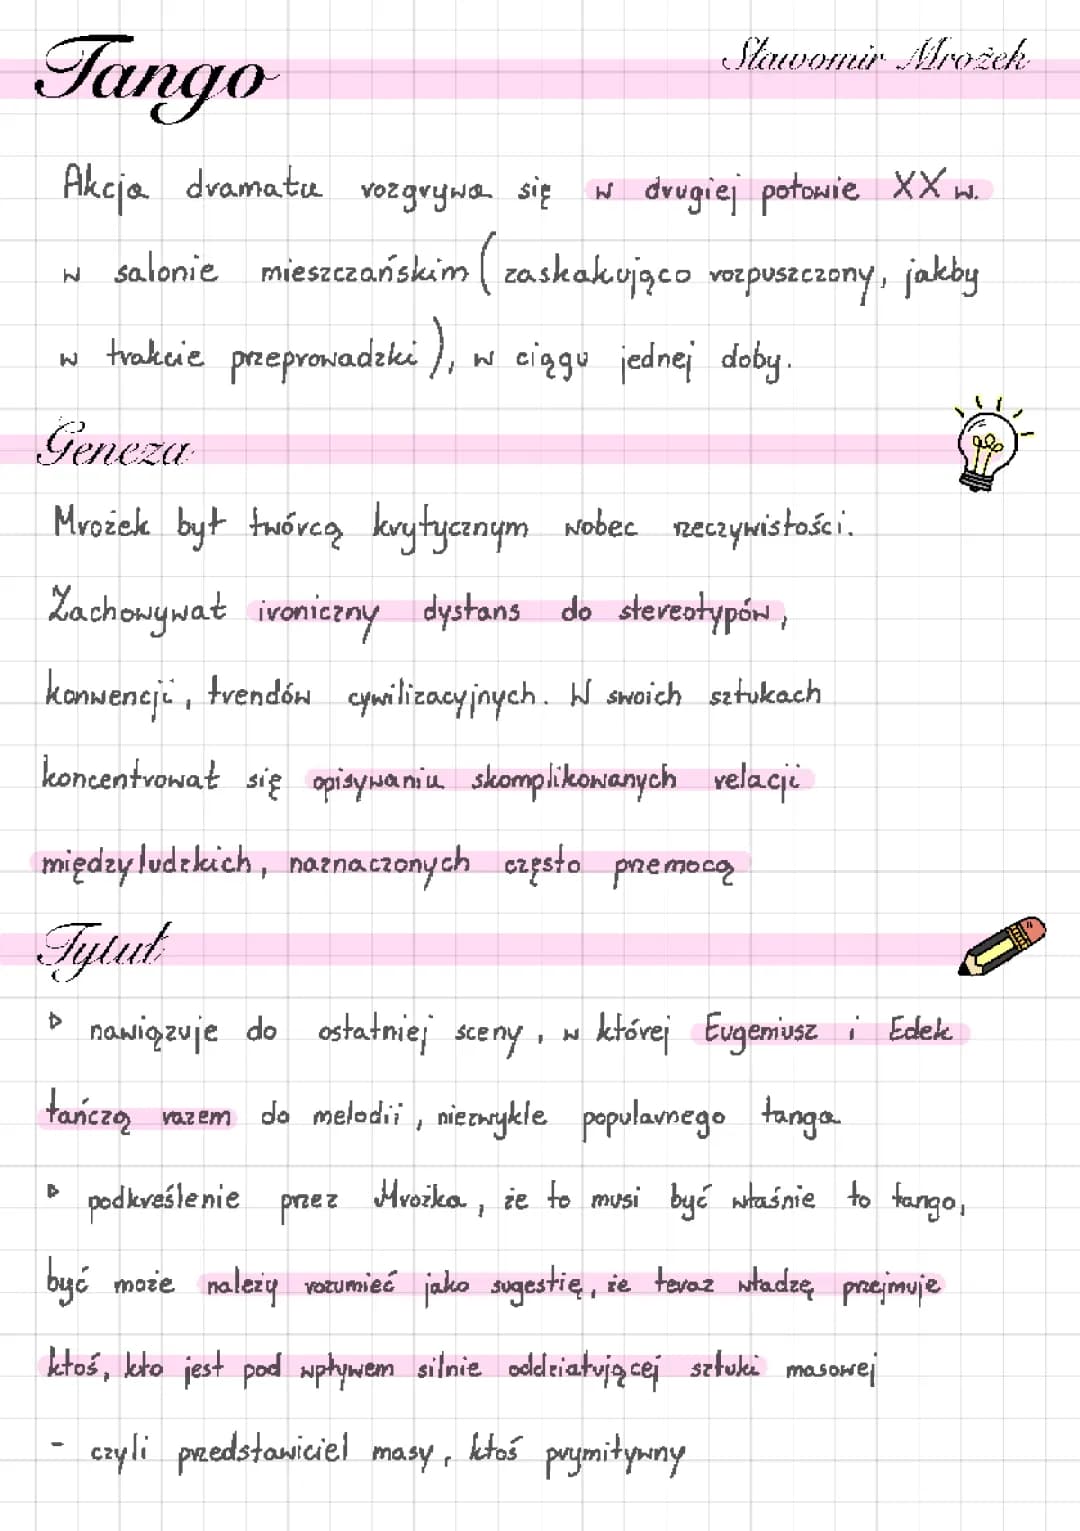 Tango
Sławomir Mrożek
Akcja dramatu rozgrywa się w drugiej połowie XX w.
w salonie mieszczańskim (zaskakująco rozpuszczony, jakby
w trakcie przeprowadzki), w ciągu jednej doby.
Geneza
Mrożek był twórcą krytycznym wobec rzeczywistości.
Zachowywał ironiczny dystans do stereotypów,
konwencji, trendów cywilizacyjnych. W swoich sztukach
koncentrował się opisywaniu skomplikowanych relacji
międzyludzkich, naznaczonych często przemocą
Tytuł
▷ nawiązuje do ostatniej sceny, w której Eugeniusz i Edek
tańczą razem do melodii, niezwykle popularnego tanga.
▷ podkreślenie przez Mrożka, że to musi być właśnie to tango,
być może należy rozumieć jako sugestię, że teraz władzę przejmuje
ktoś, kto jest pod wpływem silnie oddziałującej sztuki masowej
- czyli przedstawiciel masy, ktoś prymitywny